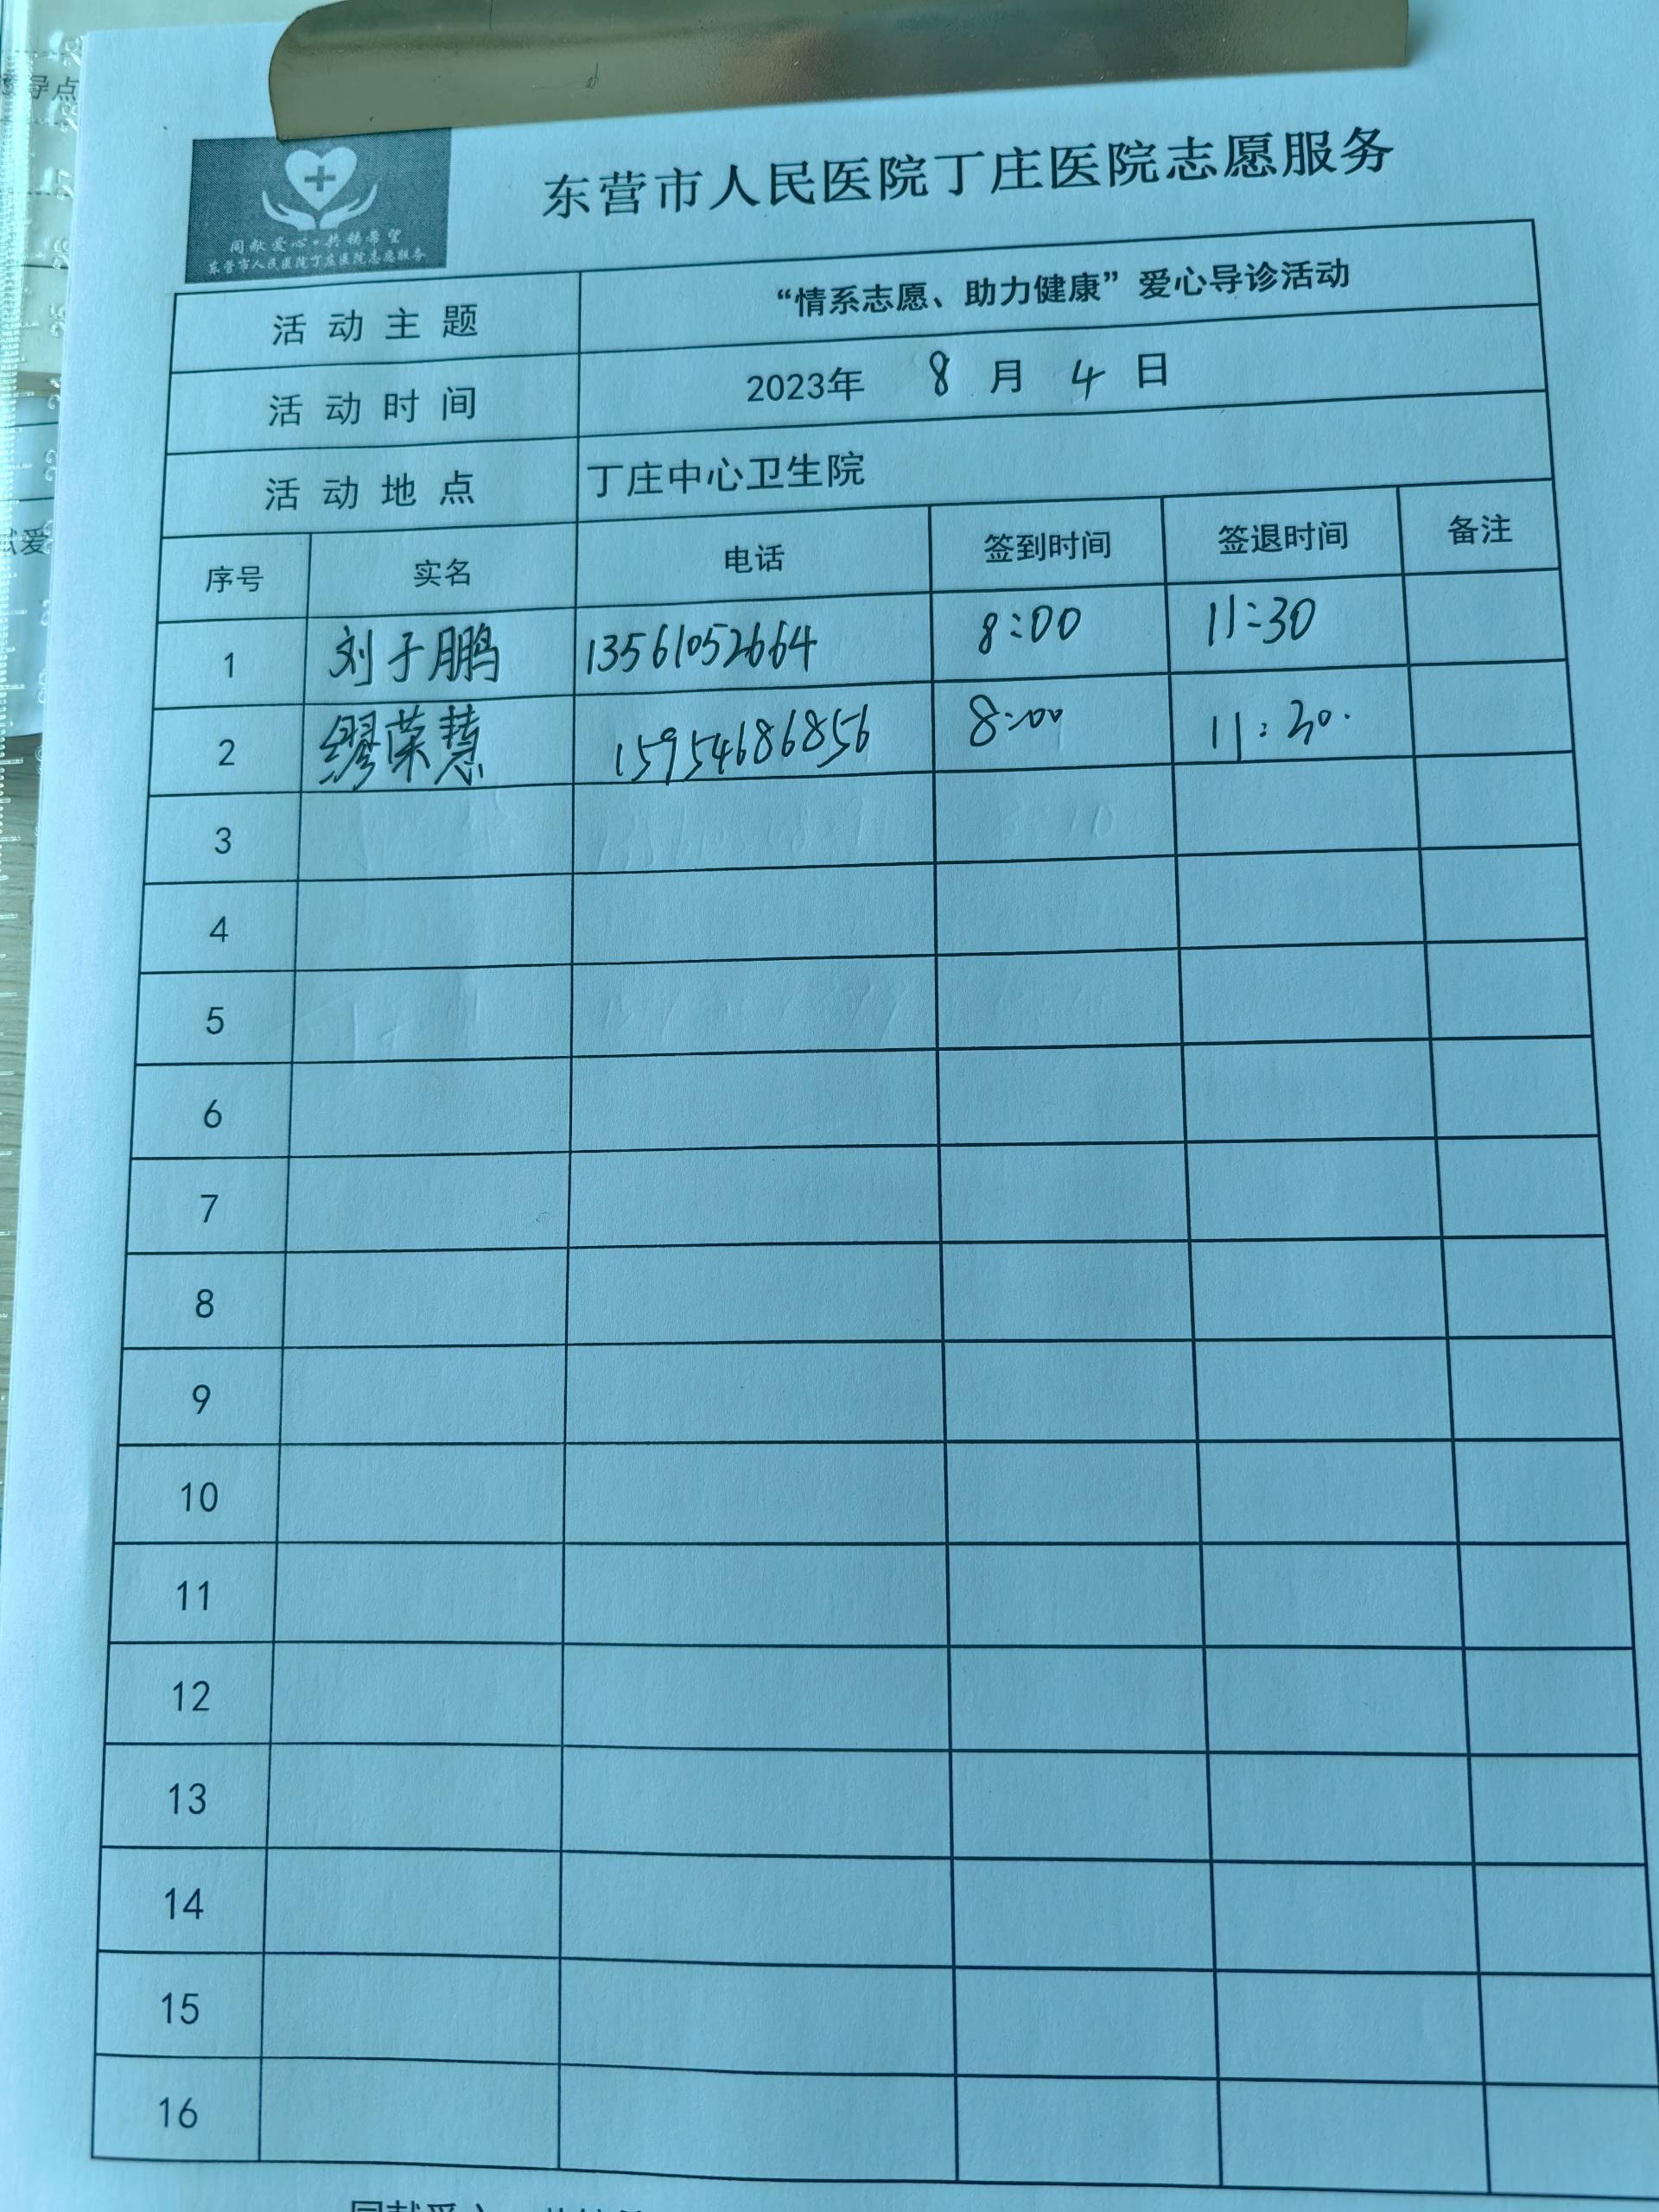 导点
东营市人民医院丁庄医院志愿服务
同献爱心·共铸希望
东营市人民医院丁庄医院志愿服务
活动主题 “情系志愿、助力健康”爱心导诊活动
活动时间 2023年 8 月 4 日
活动地点 丁庄中心卫生院
序号 实名 电话 签到时间 签退时间 备注
1 刘子鹏 13561052664 8:00 11:30
2 缪荣慧 15954686856 8:00 11:30.
3
4
5
6
7
8
9
10
11
12
13
14
15
16